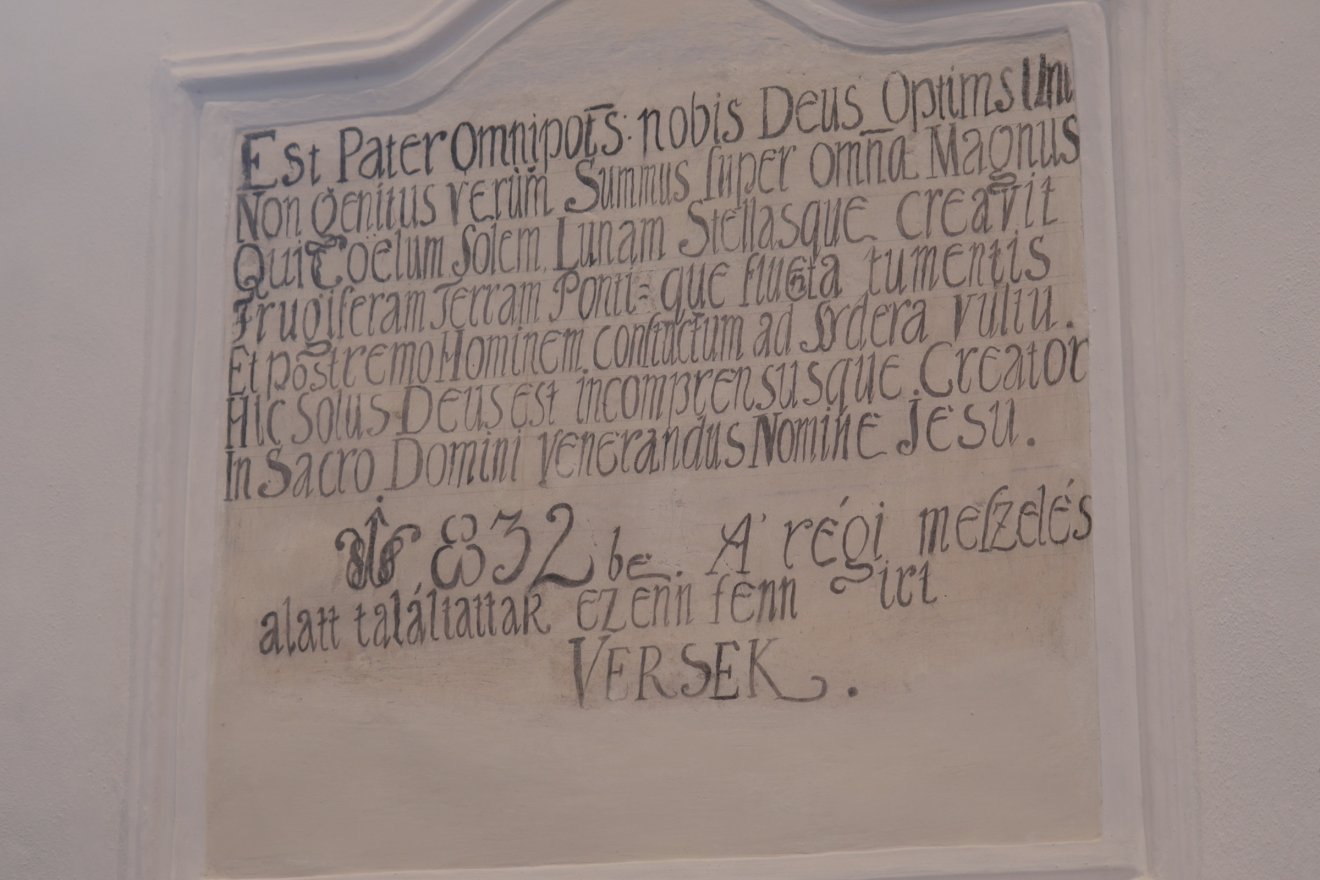 Est Pater omnipot̄s: nobis Deus Optims Uni
Non genitus verùm Summus ſuper omn̄a Magnus
Qui Coëlum Solem Lunam Stellasque creavit
Frugiferam Terram Ponti=que fluēta tumentis
Et postremo Hominem conſtructum ad Sydera vultu.
Hic Solus Deus est incomprensusque Creator
In Sacro Domini venerandus Nomine Jesu.
1832 be. A' régi meſzelés
alatt találtattak ezenn fenn irt
VERSEK.